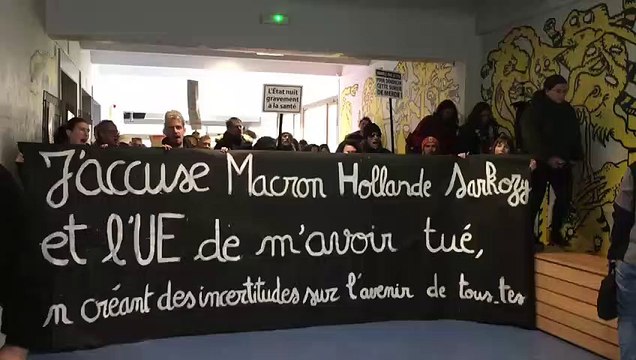 L'État nuit
gravement
à la santé
J'accuse Macron Hollande Sarkozy
et l'UE de m'avoir tué,
n créant des incertitudes sur l'avenir de tous_tes